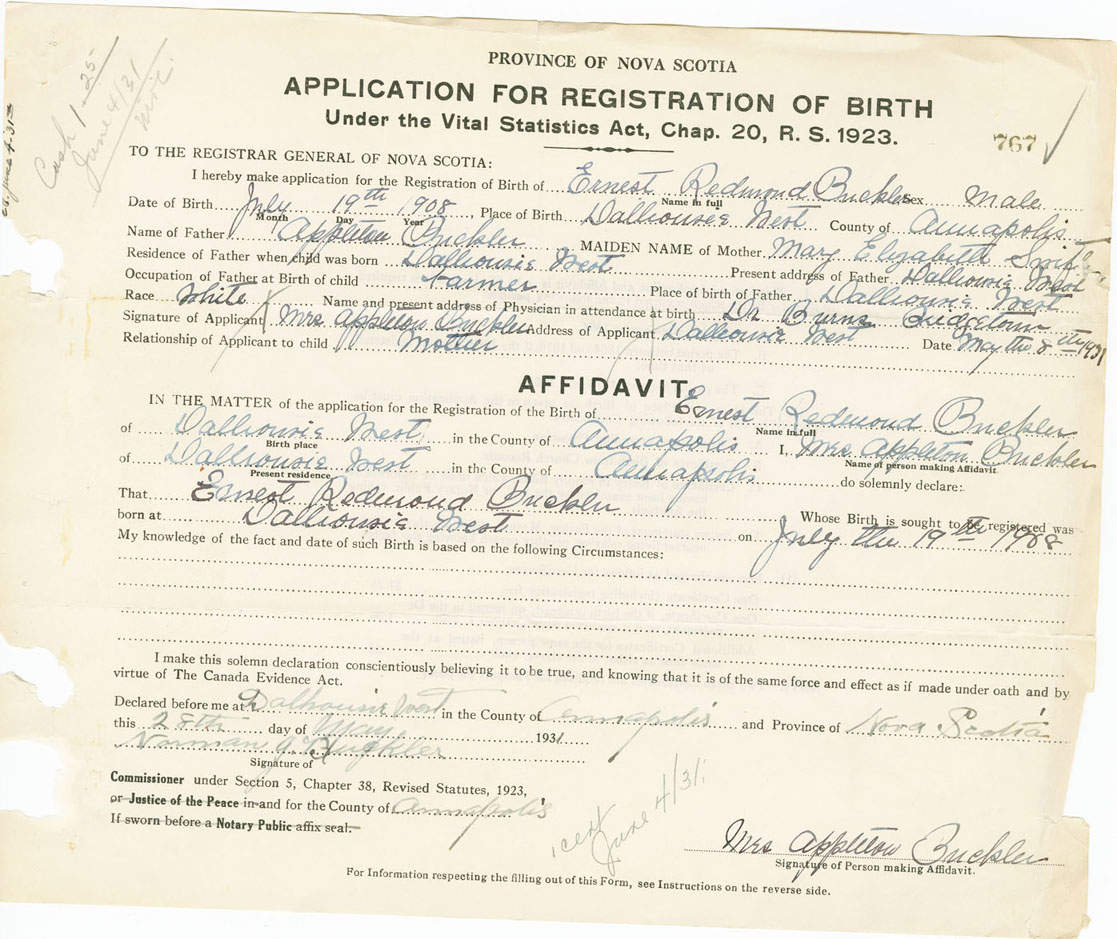 PROVINCE OF NOVA SCOTIA
APPLICATION FOR REGISTRATION OF BIRTH
Under the Vital Statistics Act, Chap. 20, R. S. 1923.
767
Cash 1.25
June 4/31
TO THE REGISTRAR GENERAL OF NOVA SCOTIA:
I hereby make application for the Registration of Birth of Ernest Redmond Buckler Sex Male
Name in full
Date of Birth July 19th 1908, Place of Birth Dalhousie West County of Annapolis
Month Day Year
Name of Father Appleton Buckler MAIDEN NAME of Mother Mary Elizabeth Smith
Residence of Father when child was born Dalhousie West Present address of Father Dalhousie West
Occupation of Father at Birth of child Farmer Place of birth of Father Dalhousie West
Race White Name and present address of Physician in attendance at birth Dr Burns Bridgetown
Signature of Applicant Mrs Appleton Buckler Address of Applicant Dalhousie West Date May the 8th 1931
Relationship of Applicant to child Mother
AFFIDAVIT
IN THE MATTER of the application for the Registration of the Birth of Ernest Redmond Buckler
Name in full
of Dalhousie West, in the County of Annapolis I, Mrs Appleton Buckler
Birth place Name of person making Affidavit
of Dalhousie West in the County of Annapolis do solemnly declare:
Present residence
That Ernest Redmond Buckler Whose Birth is sought to be registered was
born at Dalhousie West on July the 19th 1908
My knowledge of the fact and date of such Birth is based on the following Circumstances:
I make this solemn declaration conscientiously believing it to be true, and knowing that it is of the same force and effect as if made under oath and by
virtue of The Canada Evidence Act.
Declared before me at Dalhousie West in the County of Annapolis and Province of Nova Scotia
this 28th day of May 1931
Norman J. Buckler
Signature of
Commissioner under Section 5, Chapter 38, Revised Statutes, 1923,
or Justice of the Peace in and for the County of Annapolis
If sworn before a Notary Public affix seal.
cert
June 4/31
Mrs Appleton Buckler
Signature of Person making Affidavit.
For Information respecting the filling out of this Form, see Instructions on the reverse side.